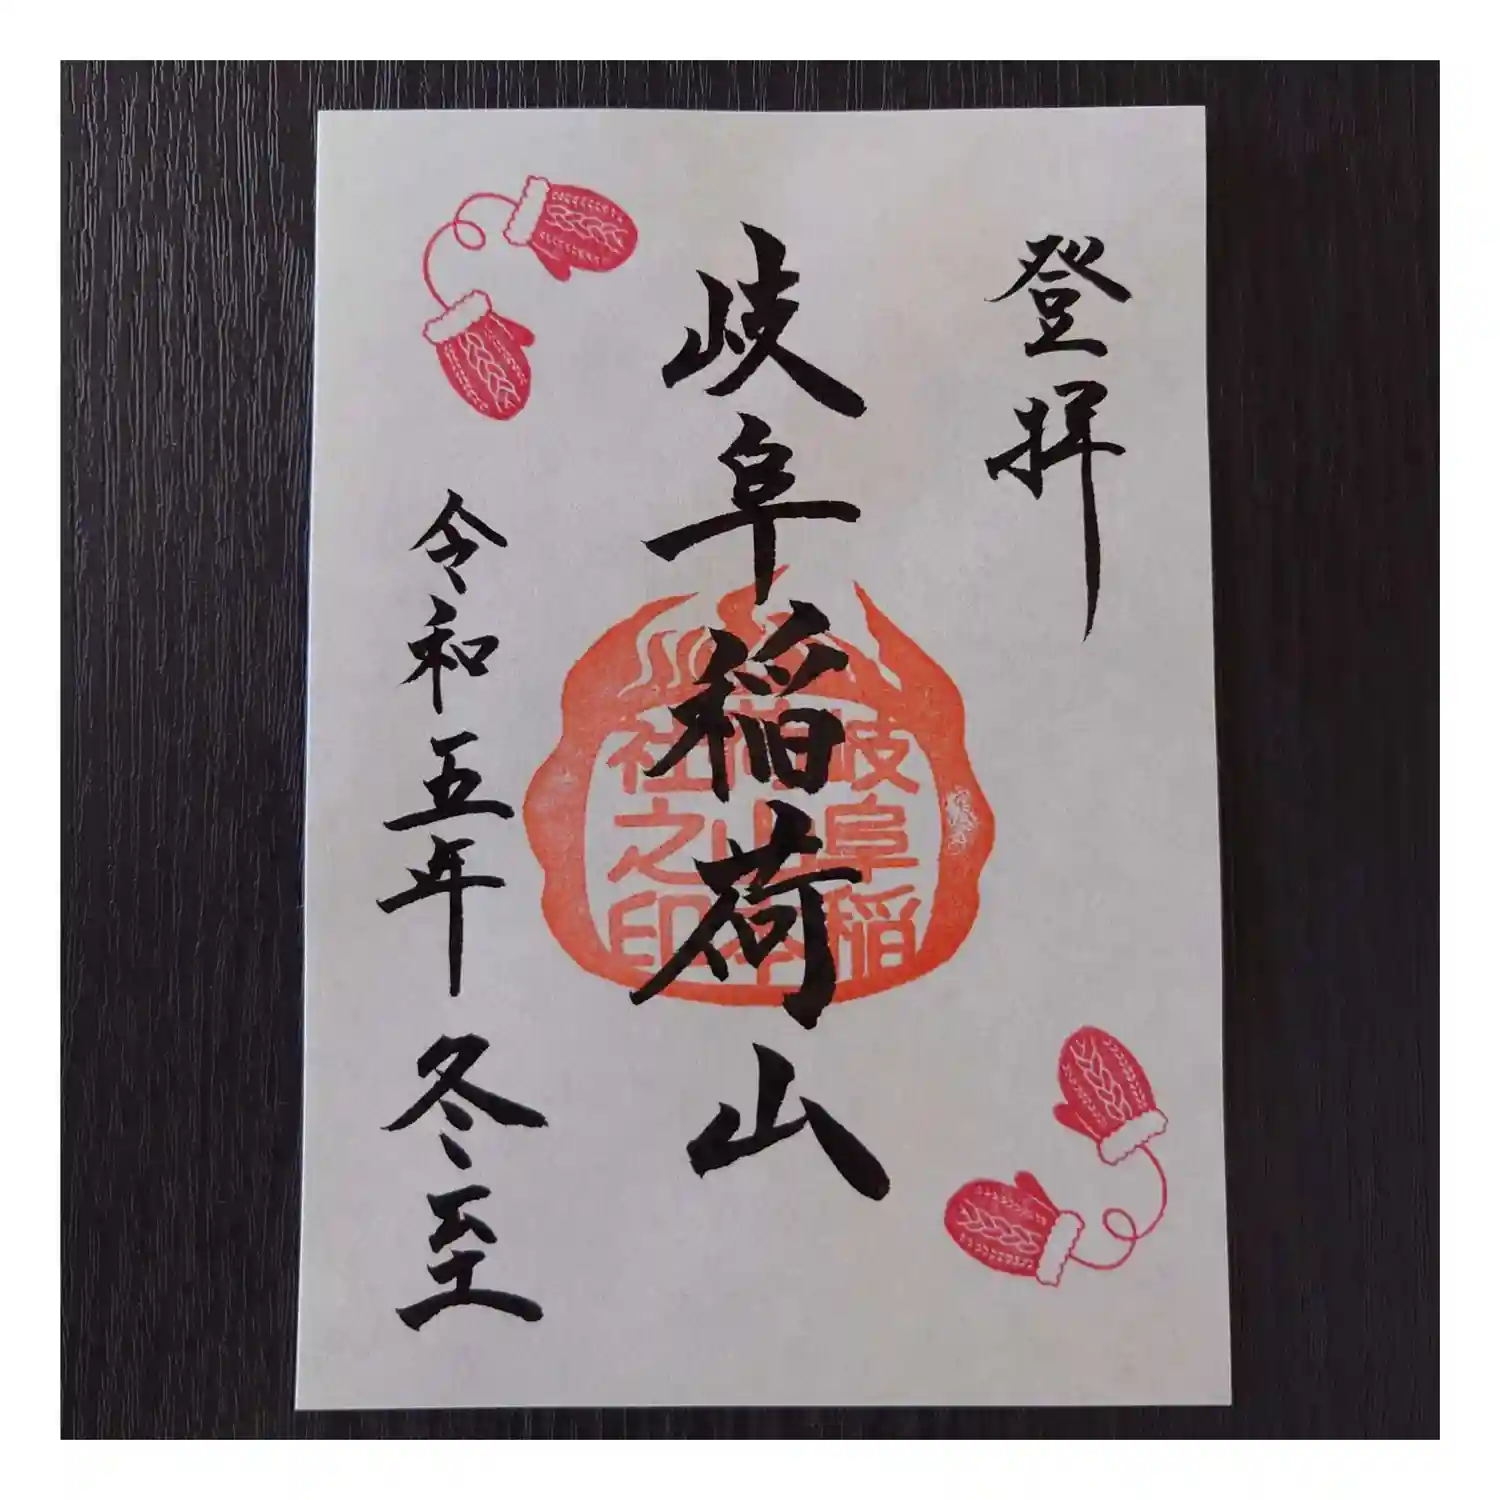 登拝
岐阜稲荷山
岐阜稲
荷山本
社之印
令和五年 冬至